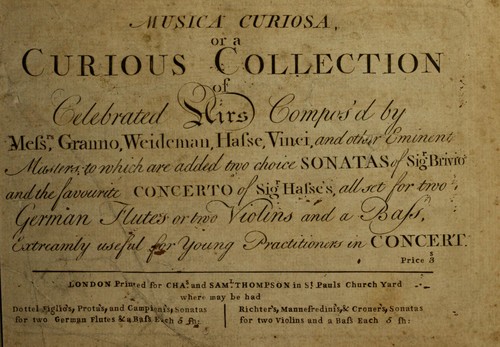 MUSICA CURIOSA,
or a
CURIOUS COLLECTION
of
Celebrated Airs Compos'd by
Meſsrs. Granno, Weideman, Haſse, Vinci, and other Eminent
Masters, to which are added two choice SONATAS of Sigr. Brivio
and the favourite CONCERTO of Sigr. Haſse's, all set for two
German Flutes or two Violins and a Baſs,
Extreamly useful for Young Practitioners in CONCERT.
Price 3s
LONDON Printed for CHAs. and SAMl. THOMPSON in St. Pauls Church Yard
where may be had
Dottel Figlio's, Prota's, and Campioni's, Sonatas
for two German Flutes & a Baſs Each 5 ſh:
Richter's, Mannefredini's, & Croner's, Sonatas
for two Violins and a Baſs Each 5 ſh: